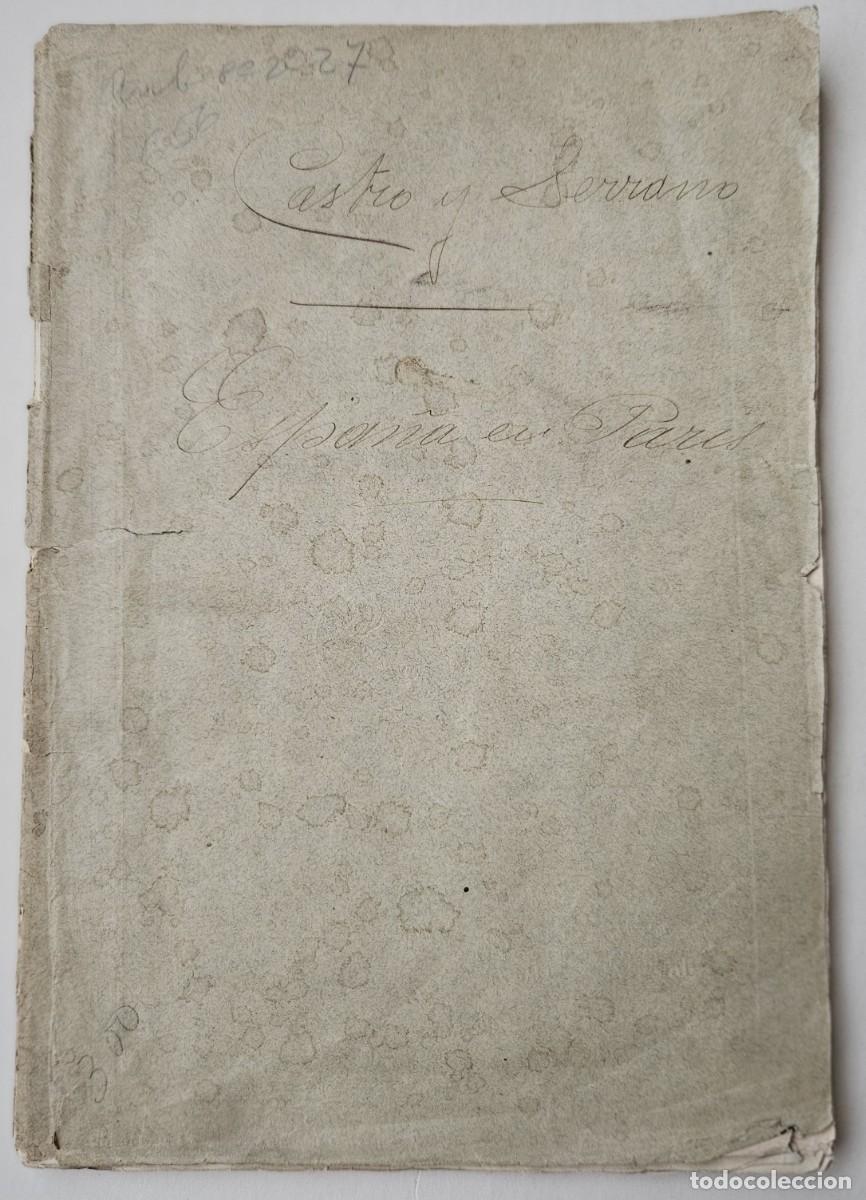 27
Castro y Serrano
España en Paris
todocoleccion